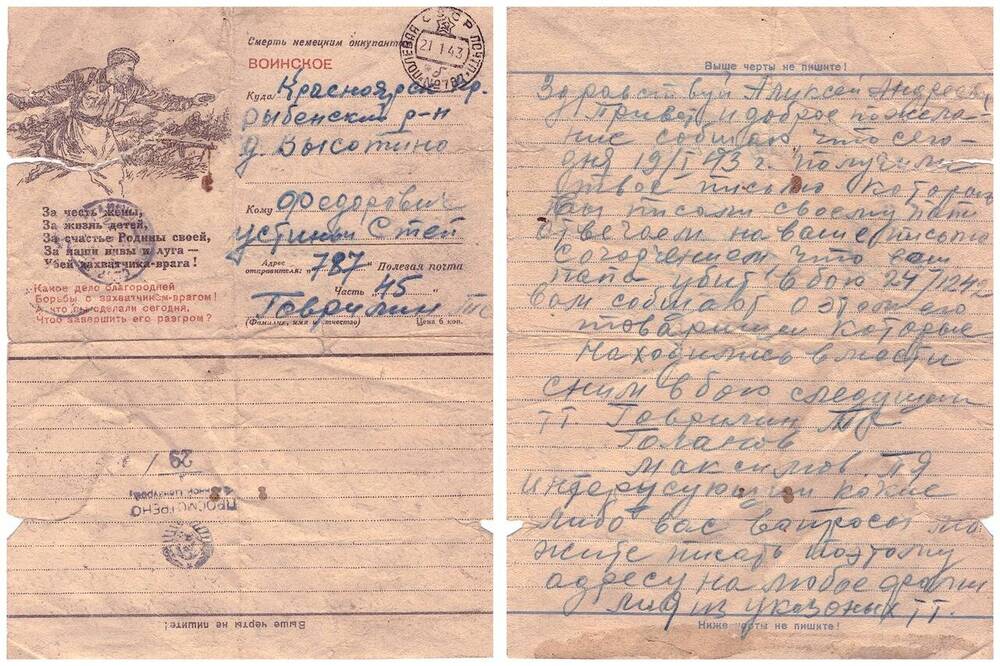 Смерть немецким оккупантам
ВОИНСКОЕ
ПОЛЕВАЯ ПОЧТА
СССР
21 1 43
№787
Куда Красноярск
рыбенский р-н
д Высотино
Кому Федорович
устиныи Степ
Адрес отправителя: "787" Полевая почта
Часть "45"
Гаврилин Т
(Фамилия, имя и отчество) Цена 6 коп.
За честь жены,
За жизнь детей,
За счастье Родины своей,
За наши нивы и луга –
Убей захватчика-врага!
Какое дело благородней
Борьбы с захватчиком-врагом!
А что вы сделали сегодня,
Чтоб завершить его разгром?
29 /
ПРОСМОТРЕНО
Военной Цензурой
Выше черты не пишите!
Выше черты не пишите!
Здравствуй Алуксеи Андреевич
Привет и доброе пожела-
ние собщаю что сего-
дня 19/I 43 г. получили
твое письмо которая
Вы писали своему
отвечаем на ваше письмо
Согодчением что ваш
папа убит в бою 24/1242
вам собщают о этом его
товарищи которые
находились вмасти
сним в бою следущии
тт. Гаврилин Т
Галанов
максимов. ПЯ
интерусующии какие
либо вас вапросы мо
жите писать поэтому
адресу на любое
из указоных тт.
Ниже черты не пишите!